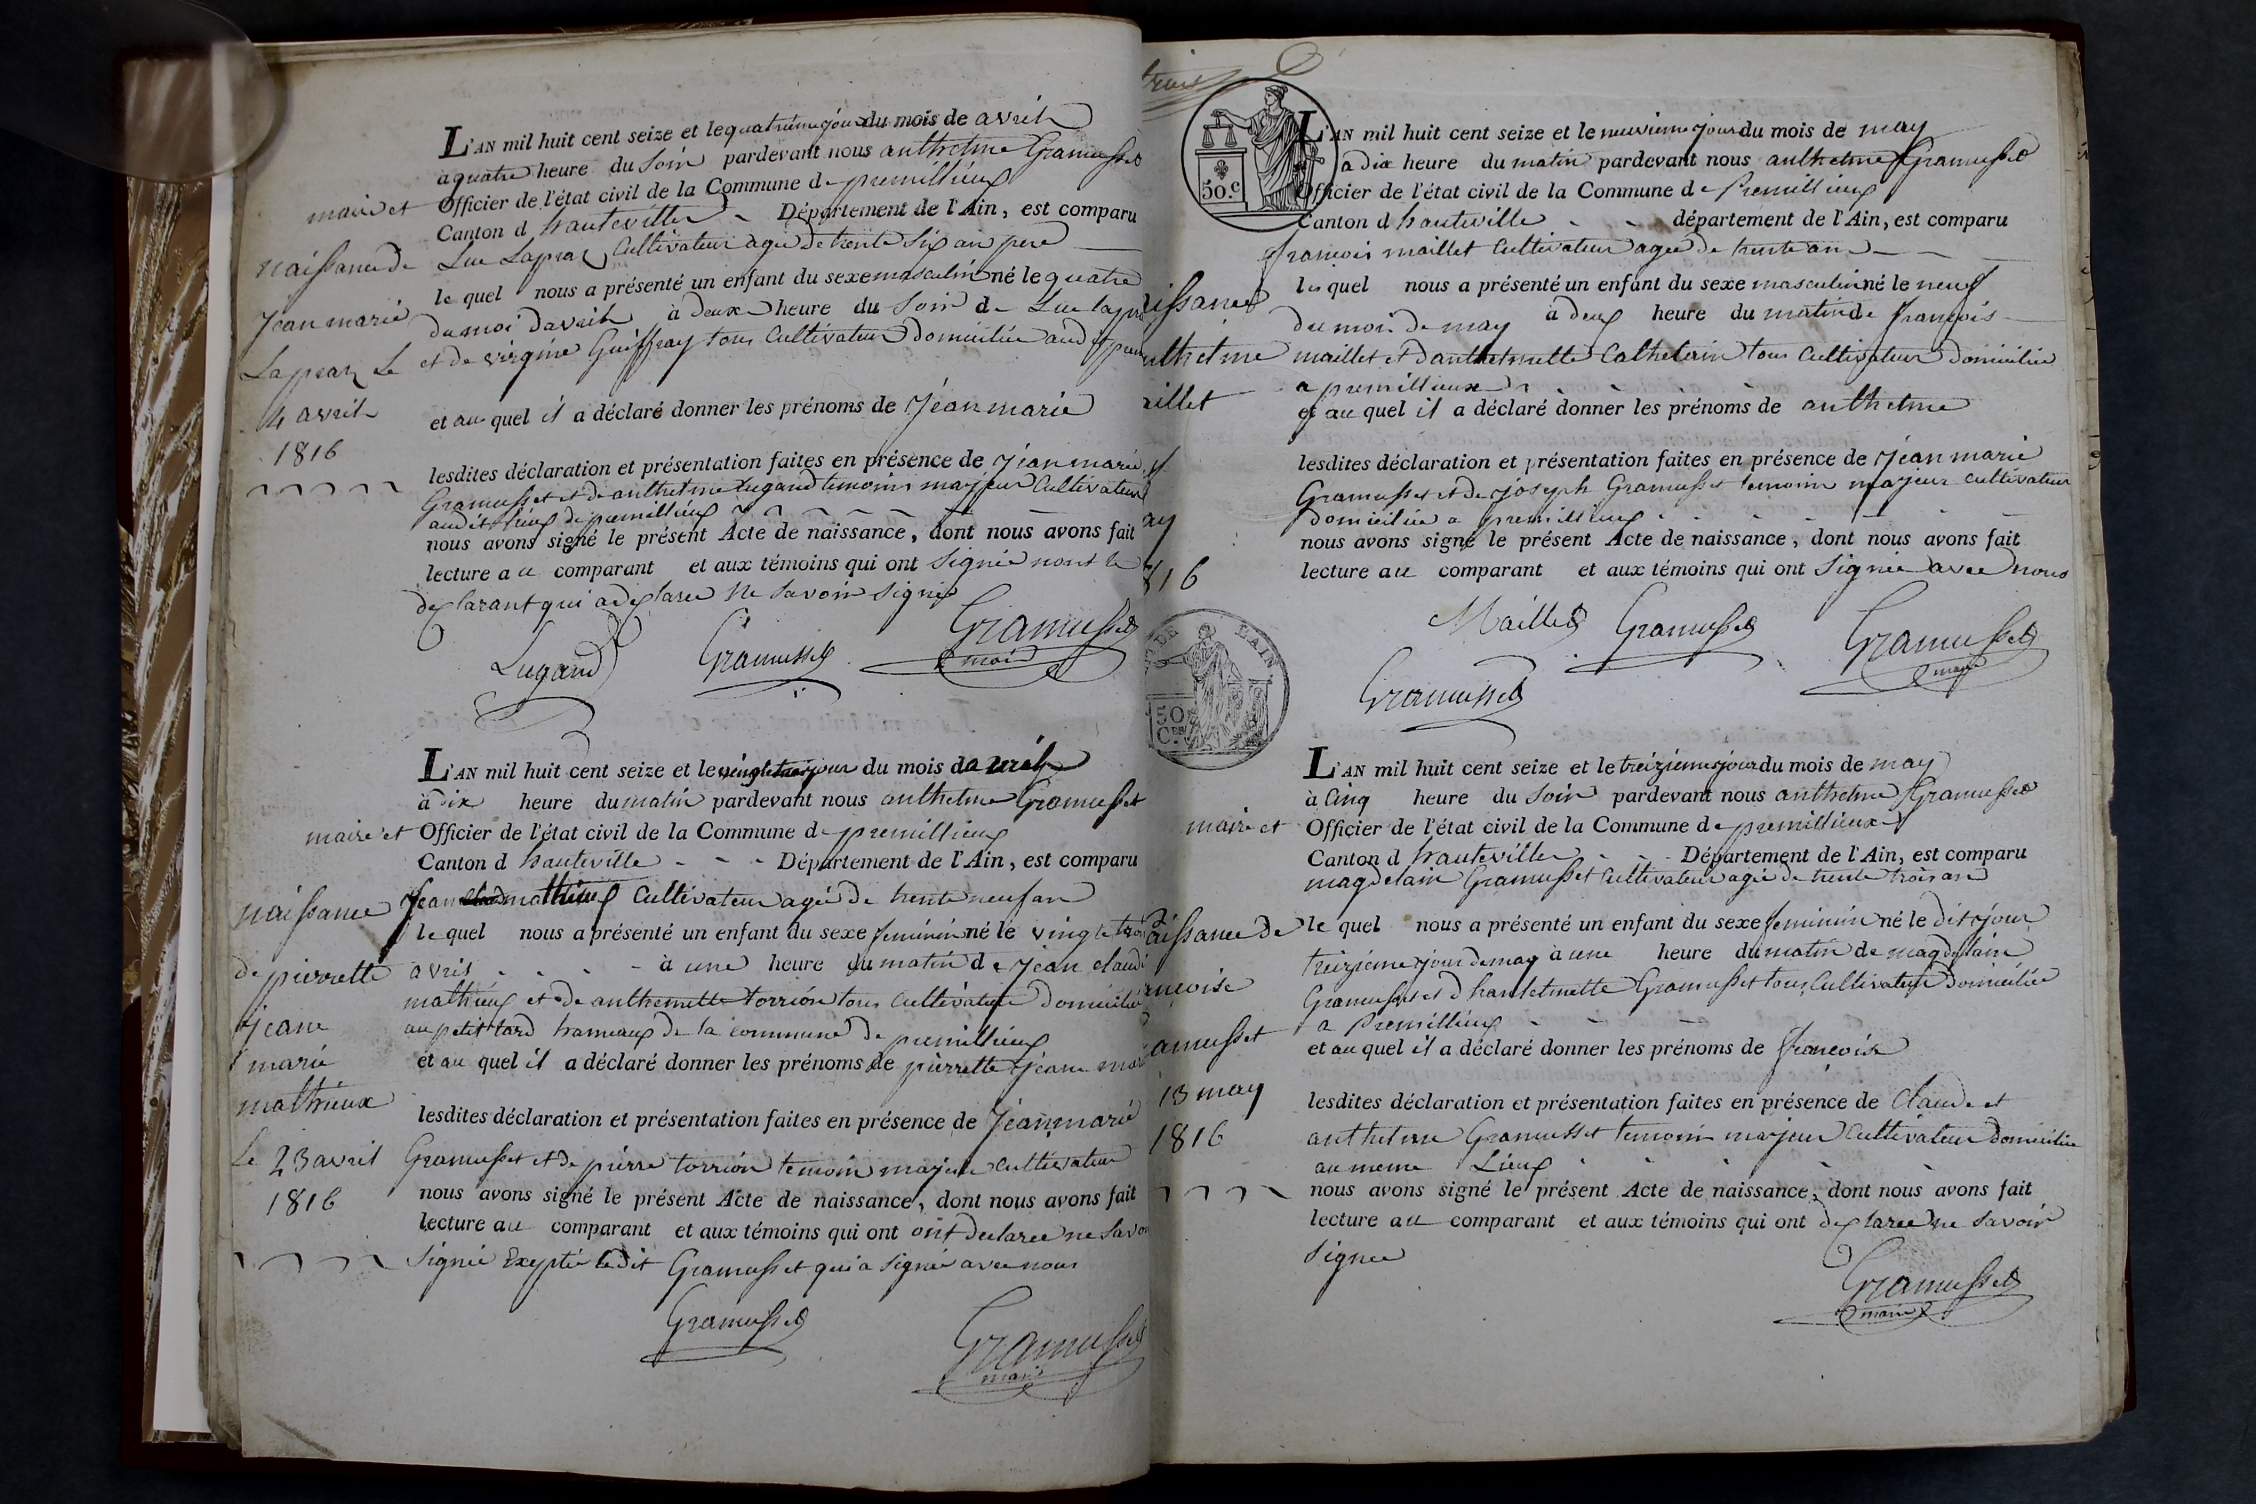 L'AN mil huit cent seize et le quatrieme jour du mois de avril
a quatre heure du Soir pardevant nous anthelme Gramusset
maire et Officier de l'état civil de la Commune de premillieux
Canton d hauteville - Département de l'Ain, est comparu
Luc Lapraz Cultivateur agée de trente six an pere
le quel nous a présenté un enfant du sexe masculin né le quatre
du moi davril à deux heure du Soir de Luc
et de virgine Guiffray tous Cultivateur domiciliée audit
et au quel il a déclaré donner les prénoms de Jean marie
lesdites déclaration et présentation faites en présence de Jean marie
Gramusset et de anthelme Lugand temoins majeur Cultivateur
audit lieux de premillieux
nous avons signé le présent Acte de naissance, dont nous avons fait
lecture au comparant et aux témoins qui ont Signée non le
declarant qui a declaree Ne Savoir Signe
naissance de
Jean marie
Lapraz Le
4 avril
1816
Lugand Gramusset Gramusset
maire
L'AN mil huit cent seize et le jour du mois d avril
à dix heure du matin pardevant nous anthelme Gramusset
maire et Officier de l'état civil de la Commune de premillieux
Canton d hauteville - - - Département de l'Ain, est comparu
Jean mathieux Cultivateur agée de trente neuf an
le quel nous a présenté un enfant du sexe feminin né le vingt trois
avril - - - - à une heure du matin de Jean claude
mathieux et de anthemette torrion tous Cultivateur domiciliée
au petit lard hameaux de la commune de premillieux
et au quel il a déclaré donner les prénoms de pierrette jeane
lesdites déclaration et présentation faites en présence de Jean marie
Gramusset et de pierre torrion temoin majeur cultivateur
nous avons signé le présent Acte de naissance, dont nous avons fait
lecture au comparant et aux témoins qui ont ont declaree ne Savoir
Signée Exeptée ledit Gramusset qui a Signée avec nous
naissance
de pierrette
jeane
marie
mathieux
Le 23 avril
1816
Gramusset Gramusset
maire
50.c
L'AN mil huit cent seize et le neuvieme jour du mois de may
a dix heure du matin pardevant nous anthelme Gramusset
Officier de l'état civil de la Commune de Premillieux
Canton d hauteville - - département de l'Ain, est comparu
françois maillet Cultivateur agée de trente an
le quel nous a présenté un enfant du sexe masculin né le neuf
du moi de may à deux heure du matin de françois
maillet et d anthelmette Cathelain tous Cultivateur domiciliée
a premillieux
et au quel il a déclaré donner les prénoms de anthelme
lesdites déclaration et présentation faites en présence de Jean marie
Gramusset et de joseph Gramusset temoin majeur cultivateur
domiciliée a premillieux
nous avons signé le présent Acte de naissance, dont nous avons fait
lecture au comparant et aux témoins qui ont Signée avec nous
aissance
nthelme
aillet
ay
816
Maillet Gramusset Gramusset
maire
Gramusset
DE L'AIN
50
Ces
L'AN mil huit cent seize et le treizieme jour du mois de may
à Cinq heure du Soir pardevant nous anthelme Gramusset
maire et Officier de l'état civil de la Commune de premillieux
Canton d hauteville - - Département de l'Ain, est comparu
magdelain Gramusset Cultivateur agée de trente trois an
le quel nous a présenté un enfant du sexe feminin né le dit jour
treizieme jour de may à une heure du matin de magdelain
Gramusset et d hanthelmette Gramusset tous Cultivateur domiciliée
a Premillieux
et au quel il a déclaré donner les prénoms de francoise
lesdites déclaration et présentation faites en présence de Claude et
anthelme Gramusset temoin majeur Cultivateur domiciliée
au meme Lieux
nous avons signé le présent Acte de naissance, dont nous avons fait
lecture au comparant et aux témoins qui ont declaree ne Savoir
Signee
aissance de
ancoise
amusset
13 may
1816
Gramusset
maire